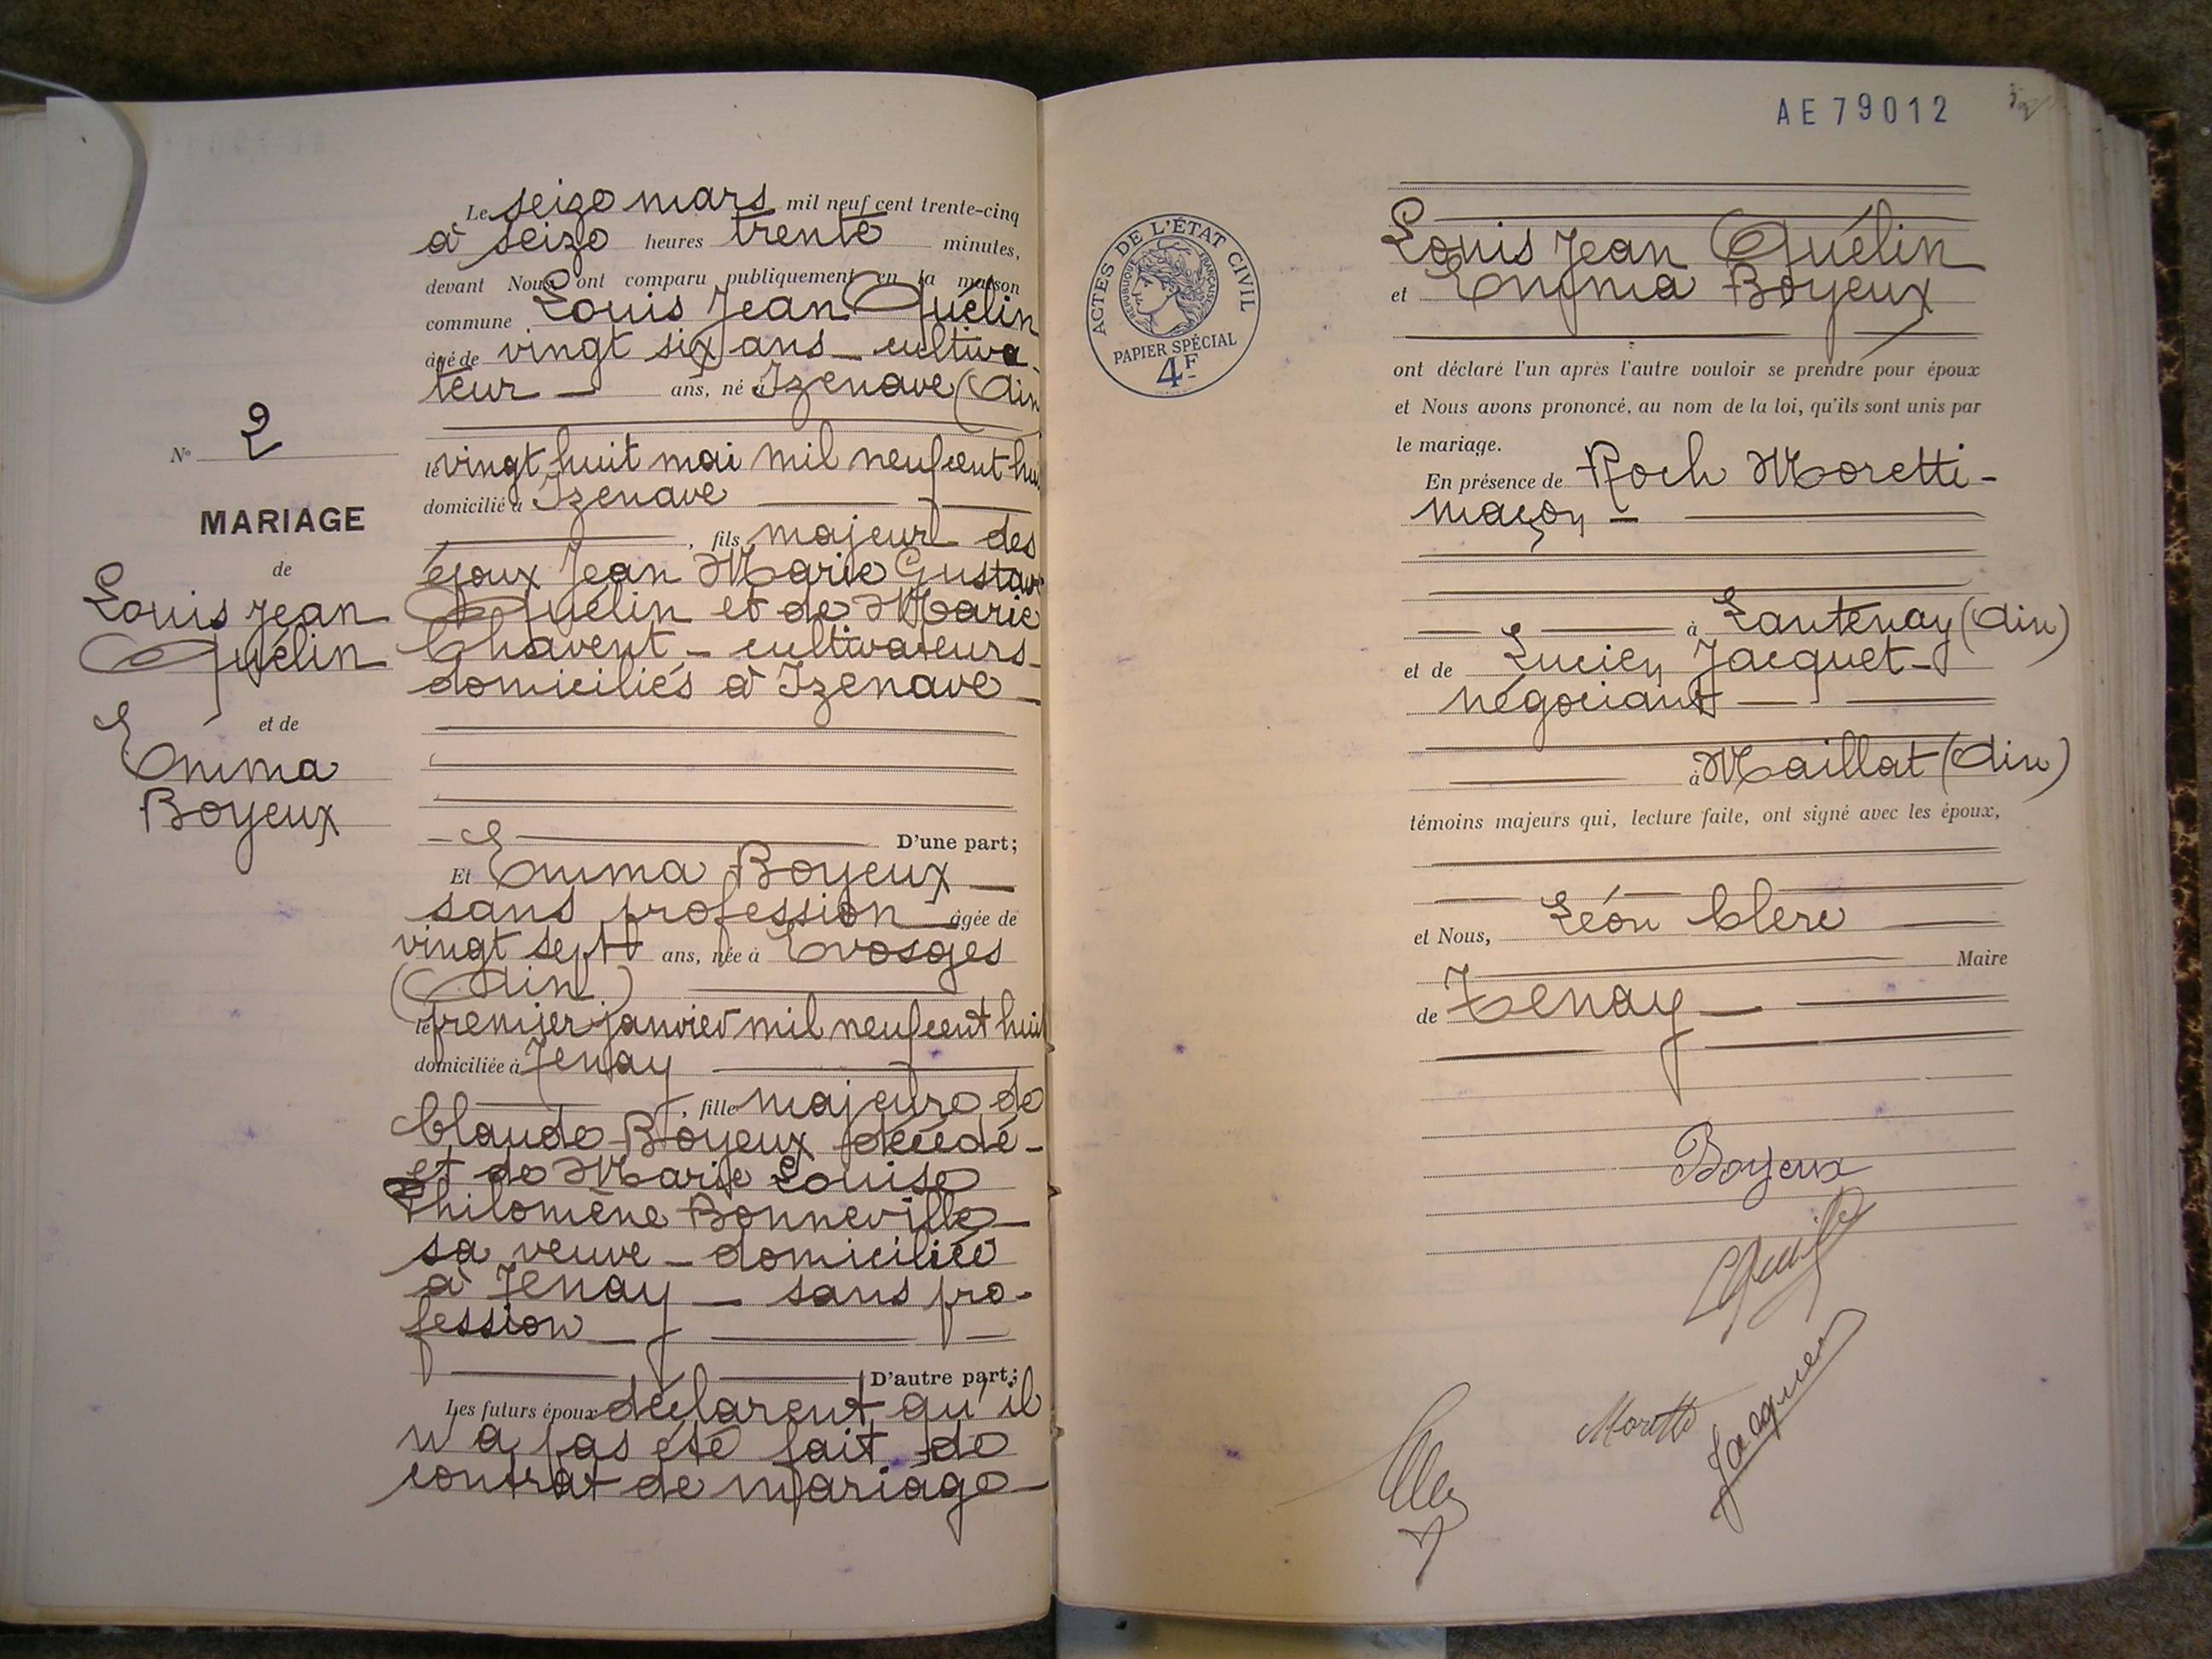 N° 2
MARIAGE
de
Louis Jean
Quélin
et de
Emma
Boyeux
Le seize mars mil neuf cent trente-cinq
à seize heures trente minutes,
devant Nous ont comparu publiquement en la maison
commune Louis Jean Quélin
âgé de vingt six ans _ cultiva
teur _ ans, né à Izenave (Ain
le vingt huit mai mil neuf cent hui
domicilié à Izenave
, fils majeur des
époux Jean Marie Gustave
Quélin et de Marie
Chavent _ cultivateurs _
domiciliés à Izenave _
D'une part;
Et Emma Boyeux _
sans profession âgée de
vingt sept ans, née à Evosges
(Ain)
le premier janvier mil neuf cent huit
domiciliée à Tenay
, fille majeure de
Claude Boyeux décédé _
et de Marie Louise
Philomène Bonneville _
sa veuve _ domiciliée
à Tenay _ sans pro-
fession _
D'autre part;
Les futurs époux déclarent qu'il
n'a pas été fait de
contrat de mariage _
AE79012
ACTES DE L'ÉTAT CIVIL
RÉPUBLIQUE FRANÇAISE
PAPIER SPÉCIAL
4F
Louis Jean Quélin
et Emma Boyeux
ont déclaré l'un après l'autre vouloir se prendre pour époux
et Nous avons prononcé, au nom de la loi, qu'ils sont unis par
le mariage.
En présence de Roch Moretti -
maçon _
à Lantenay (Ain)
et de Lucien Jacquet _
négociant _
à Maillat (Ain)
témoins majeurs qui, lecture faite, ont signé avec les époux,
et Nous, Léon Clerc
Maire
de Tenay _
Boyeux
Moretti
Jacquet